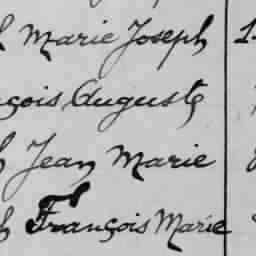 h Marie Joseph 1
çois Auguste
h Jean Marie
h François Marie